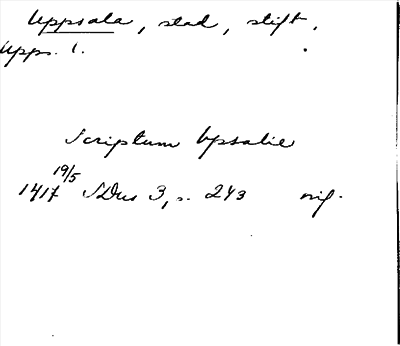 Uppsala, stad, stift.
Upps. l.
Scriptum Upsalie
19/5
1417 SDns 3, s. 243 orig.